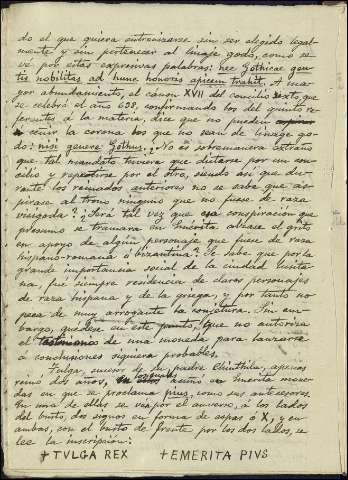 do el que quiera entronizarse sin ser eligido legal-
mente y sin pertenecer al linaje godo, como se
vé por estas expresivas palabras: nec Gothicae gen-
tis nobilitas ad hunc honoris apicem trahit. A ma-
yor abundamiento, el cánon XVII del concilio sexto que
se celebró el año 638, confirmando los del quinto re-
ferentes á la materia, dice que no pueden aspirar
á ceñir la corona los que no sean de linage go-
do: nisi genere Gothus. ¿No es sobremanera extraño
que tal mandato tuviera que dictarse por un con-
cilio y repetirse por el otro, siendo asi que du-
rante los reinados anteriores no se sabe que as-
pirase al trono ninguno que no fuese de raza
visigoda? ¿Será tal vez que esa conspiracion que
presumo se tramara en Emérita alzase el grito
en apoyo de algún personaje que fuese de raza
hispano-romana ó bizantina? Se sabe que por la
grande importancia social de la ciudad lusita-
na, fué siempre residencia de claros personajes
de raza hispana y de la griega, y por tanto no
peca de muy arrogante la conjetura. Sin em-
bargo, quédese en este punto, que no autoriza
el testimonio de una moneda para lanzarse
á conclusiones siquiera probables.
Tulga, sucesor de su padre Chinthila, apenas
reinó dos años, en los cuales acuñó en Emerita mone-
das en que se proclama pius, como sus antecesores.
En una de ellas se ven por el anverso, á los lados
del busto, dos signos en forma de aspas ó X, y en
ambas, con el busto de frente por los dos lados, se
lee la inscripcion:
+ TVLGA REX + EMERITA PIVS